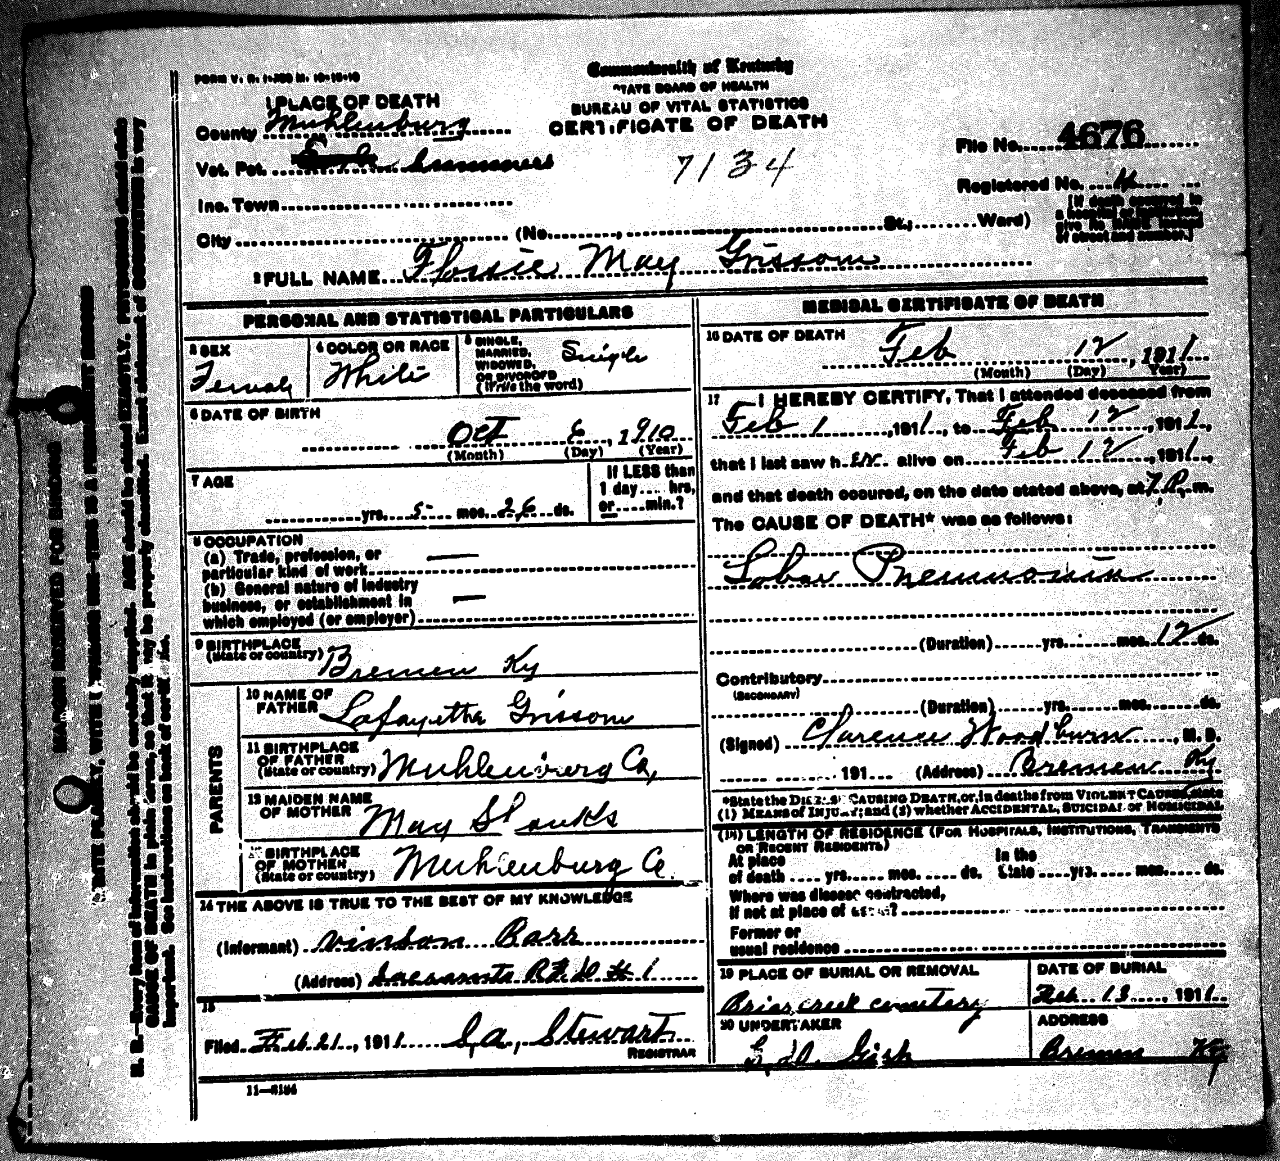 FORM V. R. 1-
Commonwealth of Kentucky
STATE BOARD OF HEALTH
BUREAU OF VITAL STATISTICS
CERTIFICATE OF DEATH
1 PLACE OF DEATH
County Muhlenburg
Vot. Pct.
Inc. Town
City (No. , St.; Ward)
7134
File No. 4676
Registered No. 4
[If death occurred in
a hospital or institution
give its NAME instead
of street and number.]
2 FULL NAME Flossie May Grissom
PERSONAL AND STATISTICAL PARTICULARS
3 SEX
Female
4 COLOR OR RACE
White
5 SINGLE,
MARRIED,
WIDOWED,
OR DIVORCED
(Write the word)
Single
6 DATE OF BIRTH
Oct 6, 1910
(Month) (Day) (Year)
7 AGE
yrs. 5 mos. 26 ds.
If LESS than
1 day.... hrs,
or.....min.?
8 OCCUPATION
(a) Trade, profession, or
particular kind of work —
(b) General nature of industry
business, or establishment in —
which employed (or employer)
9 BIRTHPLACE
(State or country) Bremen Ky
PARENTS
10 NAME OF
FATHER Lafayetha Grissom
11 BIRTHPLACE
OF FATHER
(State or country) Muhlenberg Co,
12 MAIDEN NAME
OF MOTHER May
BIRTHPLACE
OF MOTHER
(State or country) Muhlenburg Co.
14 THE ABOVE IS TRUE TO THE BEST OF MY KNOWLEDGE
(Informant) Vinson Barr
(Address) Sacramento R.F.D # 1
15
Filed Feb 21, 1911 S, A, Stewart
REGISTRAR
11—
MEDICAL CERTIFICATE OF DEATH
16 DATE OF DEATH
Feb 12, 1911
(Month) (Day) (Year)
17 I HEREBY CERTIFY, That I attended deceased from
Feb 1, 1911, to Feb 12, 1911,
that I last saw h er alive on Feb 12, 1911,
and that death occured, on the date stated above, at 7 P. m.
The CAUSE OF DEATH* was as follows:
Lobar Pneumonia
(Duration) yrs. mos. 12 ds.
Contributory
(SECONDARY)
(Duration) yrs. mos. ds.
(Signed) Clarence Woodburn, M. D.
191 (Address) Bremen Ky
*State the DISEASE CAUSING DEATH, or, in deaths from VIOLENT CAUSES, state
(1) MEANS OF INJURY; and (2) whether ACCIDENTAL, SUICIDAL or HOMICIDAL
(18) LENGTH OF RESIDENCE (FOR HOSPITALS, INSTITUTIONS, TRANSIENTS
OR RECENT RESIDENTS)
At place
of death yrs. mos. ds.
In the
State yrs. mos. ds.
Where was disease contracted,
If not at place of death?
Former or
usual residence
19 PLACE OF BURIAL OR REMOVAL
Briar creek cemetery
DATE OF BURIAL
Feb 13, 1911
20 UNDERTAKER
Gish
ADDRESS
Bremen Ky
MARGIN RESERVED FOR BINDING
WRITE PLAINLY, WITH UNFADING INK—THIS IS A PERMANENT RECORD
N. B.—Every item of information should be carefully supplied. AGE should be stated EXACTLY. PHYSICIANS should state
CAUSE OF DEATH in plain terms, so that it may be properly classified. Exact statement of OCCUPATION is very
important. See instructions on back of certificate.